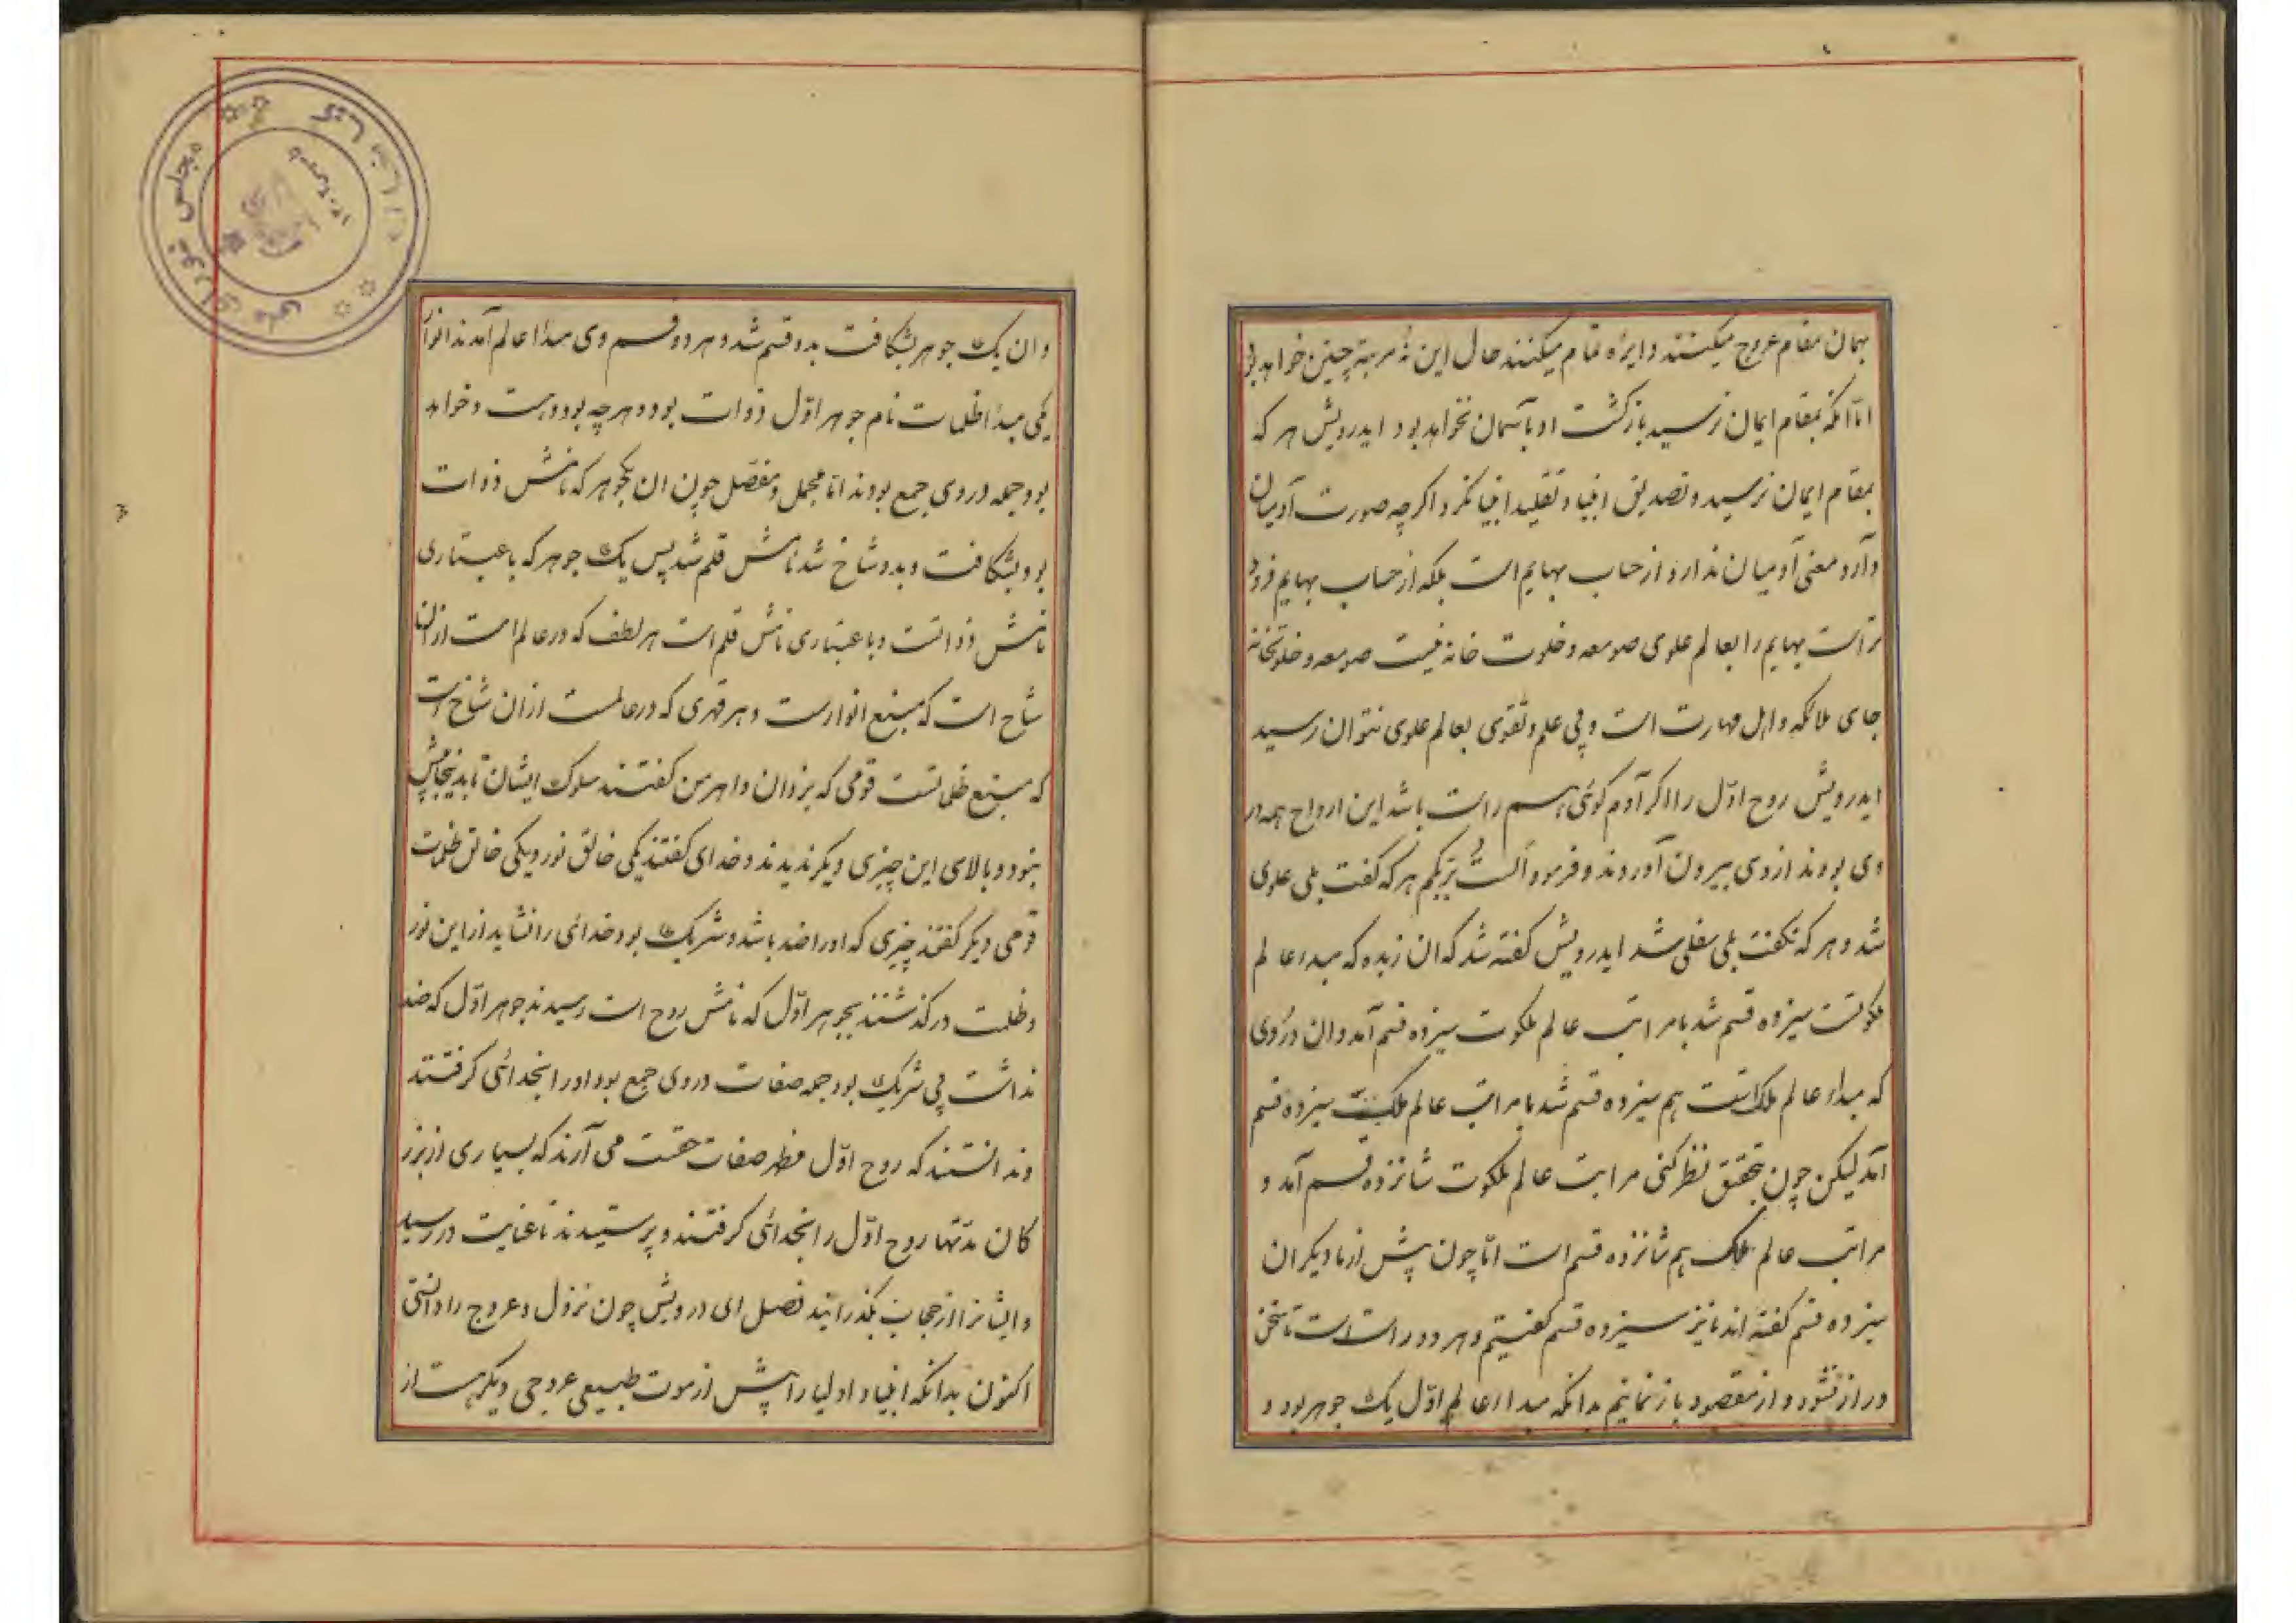 بهمان مقام عروج میکنند و دایره تمام میکنند حال این نه مرتبه چنین خواهد بود
اما انکه بمقام ایمان نرسید بازکشت او بآسمان نخواهد بود ایدرویش هر که
بمقام ایمان نرسید و تصدیق انبیا و تقلید انبیا نکرد اکرچه صورت آدمیان
دارد و معنی آدمیان ندارد از حساب بهایم است بلکه از حساب بهایم فرود
تر است بهایم را بعالم علوی صومعه و خلوت خانه نیست صومعه و خلوتخانه
جای ملائکه و اهل طهارت است و بی علم و تقوی بعالم علوی نتوان رسید
ایدرویش روح اول را اکر آدم کوئی هم راست باشد این ارواح همه در
وی بودند از وی بیرون آوردند و فرمود ألست بربکم هر که کفت بلی علوی
شد و هر که نکفت بلی سفلی شد ایدرویش کفته شد که ان زبده که مبداء عالم
ملکوتست سیزده قسم شد با مراتب عالم ملکوت سیزده قسم آمد وان دردی
که مبداء عالم ملکست هم سیزده قسم شد با مراتب عالم ملک سیزده قسم
آمد لیکن چون بتحقیق نظر کنی مراتب عالم ملکوت شانزده قسم آمد و
مراتب عالم ملک هم شانزده قسم است اما چون پیش از ما دیکران
سیزده قسم کفته اند ما نیز سیزده قسم کفتیم و هر دو راست است تا سخن
دراز نشود و از مقصود باز نمانیم بدانکه مبداء عالم اول یک جوهر بود و
وان یک جوهر بشکافت بدو قسم شد و هر دو قسم وی مبداء عالم آمدند انوار
یکی مبداء ظلمات نام جوهر اول دوات بود و هرچه بود و هست و خواهد
بود جمله در وی جمع بودند اما مجمل و مفصل چون ان یکجوهر که نامش دوات
بود بشکافت و بدو شاخ شد نامش قلم شد پس یک جوهر که باعتباری
نامش دواتست و باعتباری نامش قلم است هر لطف که در عالم است از ان
شاخ است که منبع انوارست و هر قهری که در عالمست از ان شاخ است
که منبع ظلماتست قومی که یزدان و اهرمن کفتند سلوک ایشان تا بدینجا بیش
نبود و بالای این چیزی دیکر ندیدند و خدای کفتند یکی خالق نور و یکی خالق ظلمت
قومی دیکر کفتند چیزی که او را ضد باشد و شریک بود خدائی را نشاید از این نور
و ظلمت در کذشتند بجوهر اول که نامش روح است رسیدند جوهر اول که ضد
نداشت بی شریک بود جمله صفات در وی جمع بود او را بخدائی کرفتند
و ندانستند که روح اول مظهر صفات حقست می آرند که بسیاری از بزر
کان مدتها روح اول را بخدائی کرفتند و پرستیدند تا عنایت در رسید
و ایشانرا از حجاب بکذرانید فصل ای درویش چون نزول و عروج را دانستی
اکنون بدانکه انبیا و اولیا را پیش از موت طبیعی عروجی دیکر هست از
مجلس شورای ملی